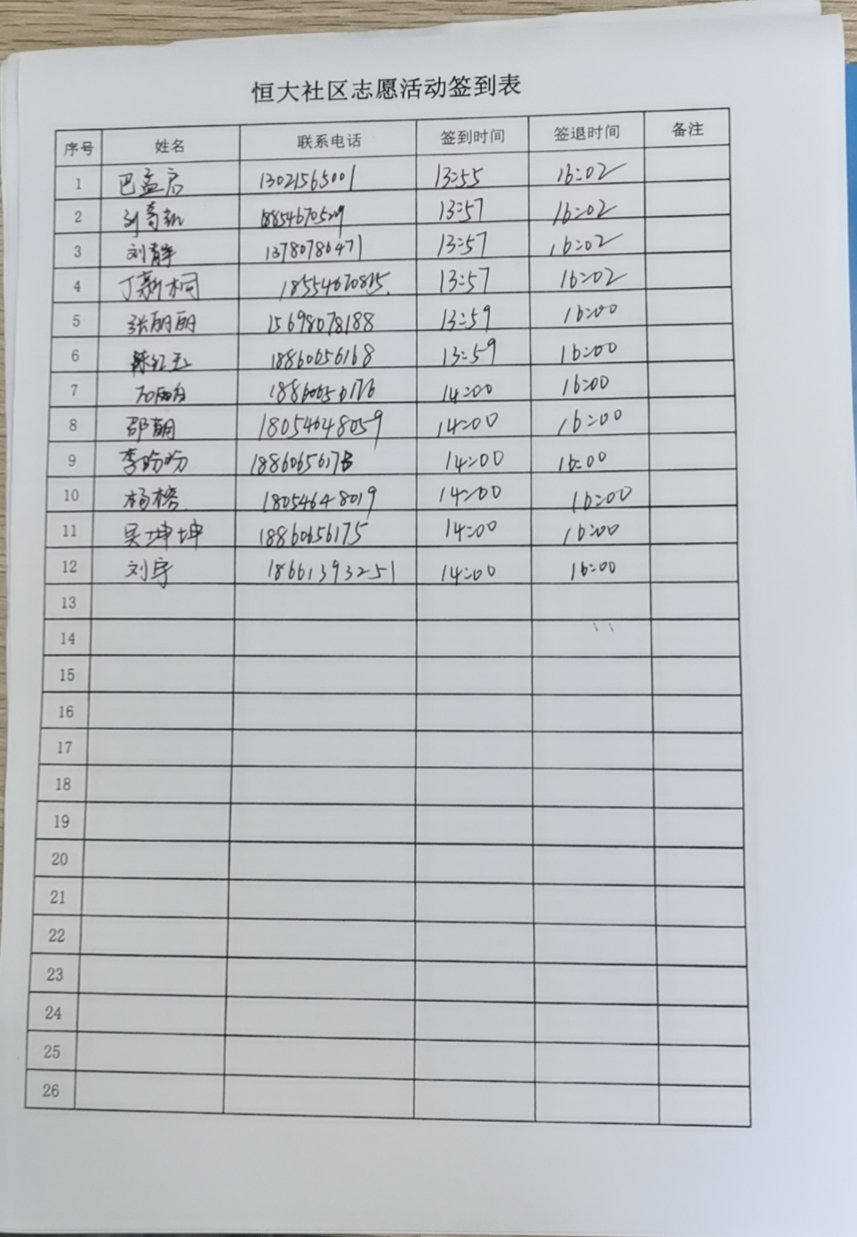 恒大社区志愿活动签到表
序号 姓名 联系电话 签到时间 签退时间 备注
1 巴孟启 13021565001 13:55 16:02
2 18854670529 13:57 16:02
3 刘静 13780786471 13:57 16:02
4 丁新桐 18554670815 13:57 16:02
5 张丽丽 15698078188 13:59 16:00
6 陈红玉 18860656168 13:59 16:00
7 18860656176 14:00 16:00
8 邵朝 18054648059 14:00 16:00
9 李盼盼 14:00 16:00
10 杨榕 18054648019 14:00 16:00
11 吴坤坤 18860656175 14:00 16:00
12 刘宇 18661393251 14:00 16:00
13
14
15
16
17
18
19
20
21
22
23
24
25
26